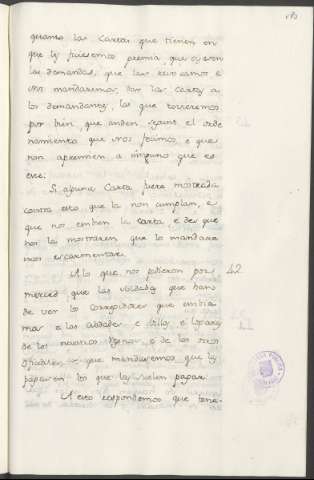 quanto las Cartas que tienen en
que les pusiemos premia que oyesen
las demandas, que las revocamos e
Nos mandaremos dar las cartas a
los demandantes, las que tovieremos
por bien, que anden segunt el orde
namiento que Nos fecimos, e que
non apremien a ninguno que es
crive:
Si alguna Carta fuere mostrada
contra esto que la non cumplan, e
que nos embien la carta, e el que
nos la mostraren que lo mandare
mos escarmentar.
A lo que nos pidieron por 42
merced que las soldadas que han
de ver los Corregidores que embia
mos a las cibdades e Villas e Lugares
de los nuestros Regnos, e de los otros
Oficiales que mandaremos que les
paguen los que les suelen pagar.
A esto respondemos que tene-